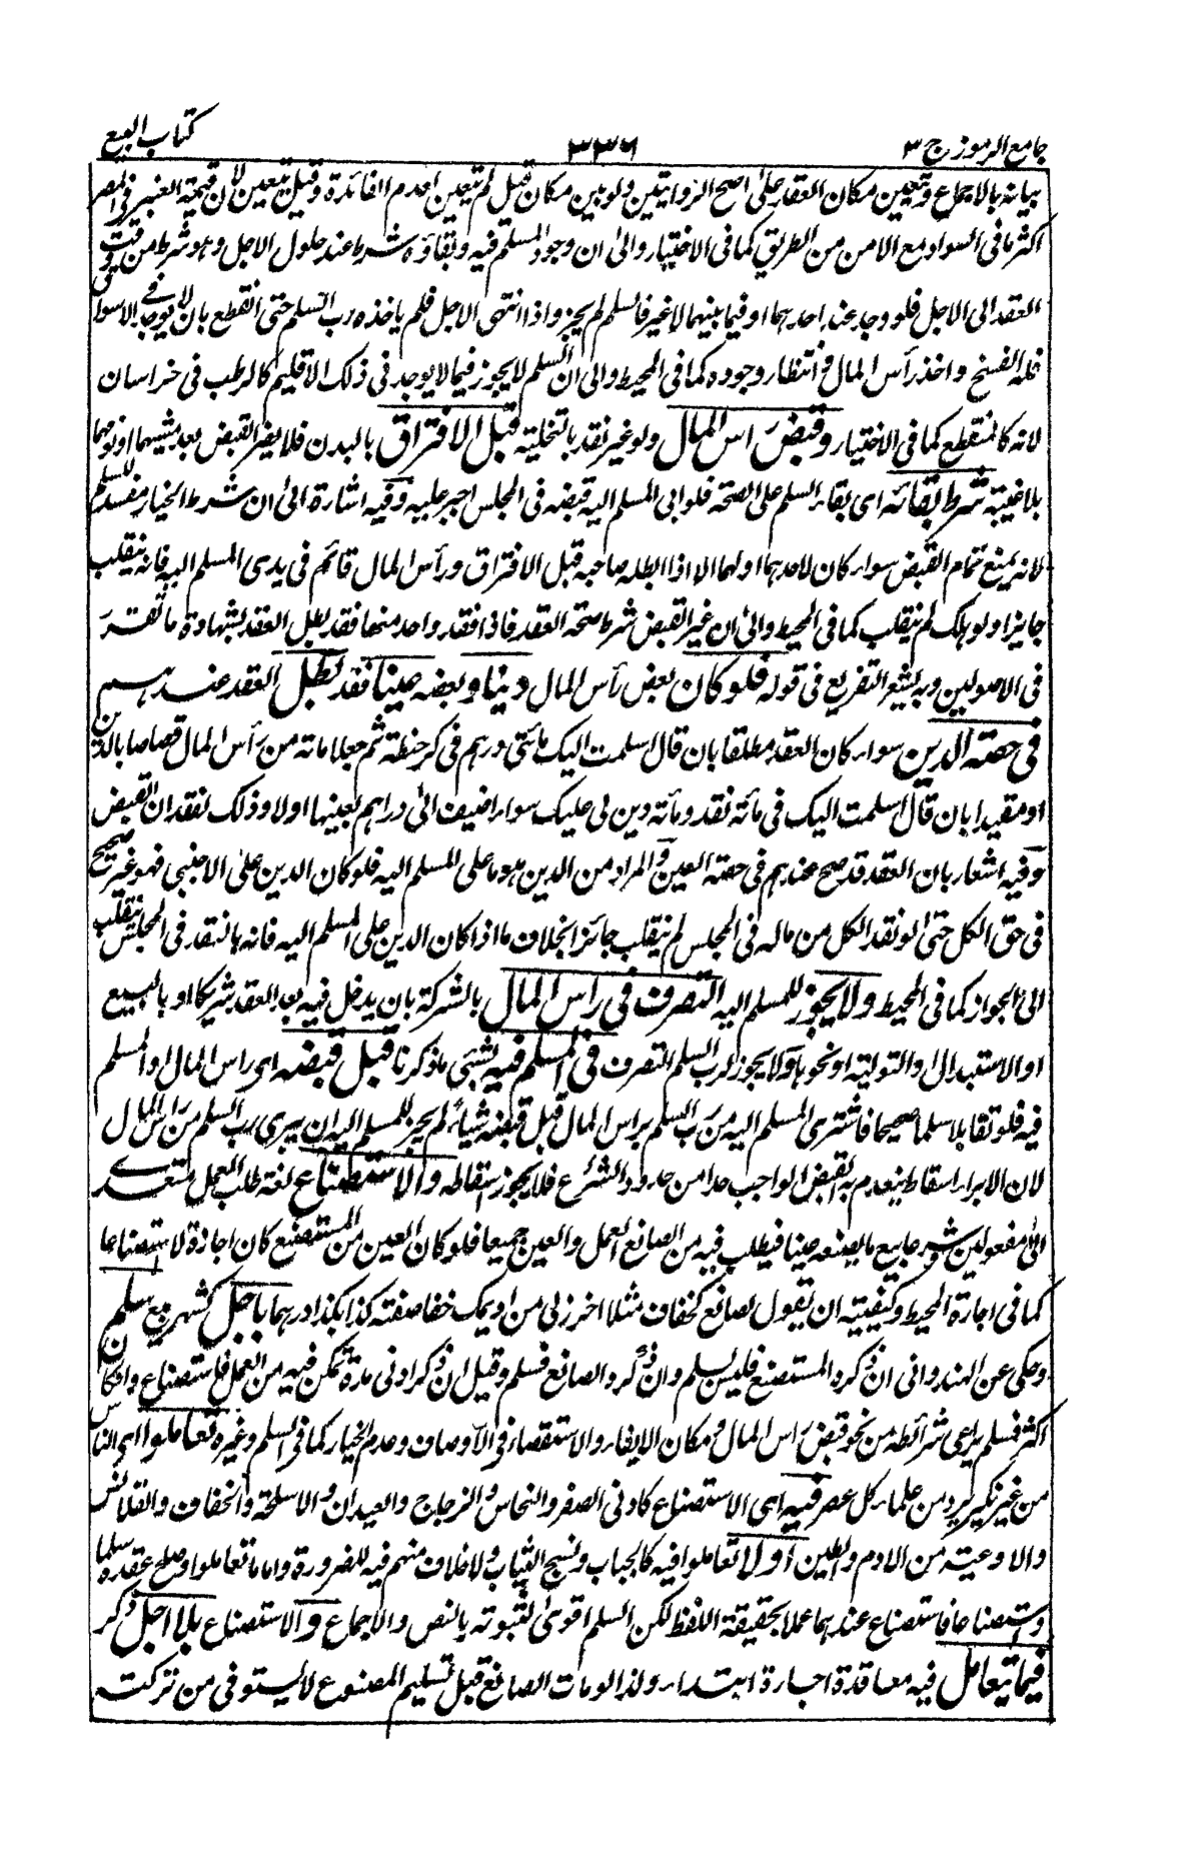 جامع الرموز ج ٣
٣٣٦
كتاب البيع
بيانه بالاجماع وتعيين مكان العقد على اصح الروايتين ولو بين مكان قيل لم يتعين لعدم الفائدة وقيل يتعين لان قيمة العنبر فى المصر
اكثر ما فى السواد مع الامن من الطريق كما فى الاختيار والى ان وجود المسلم فيه وبقاؤه شرط عند حلول الاجل وهو شرط من وقت
العقد الى الاجل فلو وجد عند احدهما او فيما بينهما لا غير فالسلم لم يجز واذا انتهى الاجل فلم ياخذه رب السلم حتى انقطع بان لا يوجد فى الاسواق
فله الفسخ واخذ رأس المال وانتظار وجوده كما فى المحيط والى ان السلم لا يجوز فيما لا يوجد فى ذلك الاقليم كالرطب فى خراسان
لانه كالمنقطع كما فى الاختيار وقبض رأس المال ولو غير نقد بالتخلية قبل الافتراق بالبدن فلا يضر القبض بعد مشيهما او نومهما
بلا غيبته شرط بقائه اى بقاء السلم على الصحة فلو ابى المسلم اليه قبضه فى المجلس اجبر عليه وفيه اشارة الى ان شرط الخيار مفسد للسلم
لانه يمنع تمام القبض سواء كان لاحدهما او لهما الا اذا ابطله صاحبه قبل الافتراق ورأس المال قائم فى يدى المسلم اليه فانه ينقلب
جايزا ولو هلك لم ينقلب كما فى المحيط والى ان غير القبض شرط صحة العقد فاذا فقد واحد منها فقد بطل العقد بشهادة ما تقرر
فى الاصولين وبه يشعر التفريع فى قوله فلو كان بعض رأس المال دينا وبعضه عينا فقد بطل العقد عندهم
فى حصة الدين سواء كان العقد مطلقا بان قال اسلمت اليك مائتى درهم فى كر حنطة ثم جعلا مائة من رأس المال قصاصا بالدين
او مقيدا بان قال اسلمت اليك فى مأئة نقد ومأئة دين لى عليك سواء اضيف الى دراهم بعينها اولا وذلك لفقدان القبض
وفيه اشعار بان العقد قد صح عندهم فى حصة العين والمراد من الدين هو ما على المسلم اليه فلو كان الدين على الاجنبى فهو غير صحيح
فى حق الكل حتى لو نقد الكل من ماله فى المجلس لم ينقلب جائزا بخلاف ما اذا كان الدين على المسلم اليه فانه بالنقد فى المجلس ينقلب
الى الجواز كما فى المحيط ولا يجوز للمسلم اليه التصرف فى رأس المال بالشركة بان يدخل فيه بعد العقد شريكا او بالبيع
او الاستبدال او التولية او نحوها ولا يجوز لرب السلم التصرف فى المسلم فيه بشئ ما ذكرنا قبل قبضه اى راس المال والمسلم
فيه فلو تقايلا سلما صحيحا فاشترى المسلم اليه من رب السلم براس المال قبل قبضه شيأ لم يجز للمسلم اليه ان يبرى رب السلم من راس المال
لان الابراء اسقاط ينعدم به القبض الواجب حدا من حدود الشرع فلا يجوز اسقاطه والاستصناع لغة طلب العمل متعدى
الى مفعولين وشرعا بيع ما يصنعه عينا فيطلب فيه من الصانع العمل والعين جميعا فلو كان العين من المستصنع كان اجارة لا استصناعا
كما فى اجارة المحيط وكيفيته ان يقول لصانع كخفاف مثلا اخرز لى من اديمك خفا صفته كذا بكذا درهما باجل كشهر بيع سلم
وحكى عن الهندوانى ان ذكره المستصنع فليس بسلم وان ذكره الصانع فسلم وقيل ان ذكر ادنى مدة يمكن فيه من العمل فاستصناع وان كان
اكثر فسلم يراعى شرائطه من نحو قبض رأس المال ومكان الايفاء والاستقصاء فى الاوصاف وعدم الخيار كما فى السلم وغيره تعاملوا اى الناس
من غير نكير كبير من علماء كل عصر فيه اى الاستصناع كاوانى الصفر والنحاس والزجاج والعيدان والاسلحة والخفاف والقلانس
والاوعية من الادم والطين او لا تعاملوا فيه كالجباب ونسج الثياب ولا خلاف منهم فيه للضرورة واما ما تعاملوا وصلح عقده سلما
واستصناعا فاستصناع عندهما عملا بحقيقة اللفظ لكن السلم اقوى لثبوته بالنص والاجماع والاستصناع بلا اجل ذكر
فيما يتعامل فيه معاقدة اجارة ابتداء ولذا لو مات الصانع قبل تسليم المصنوع لا يستوفى من تركته